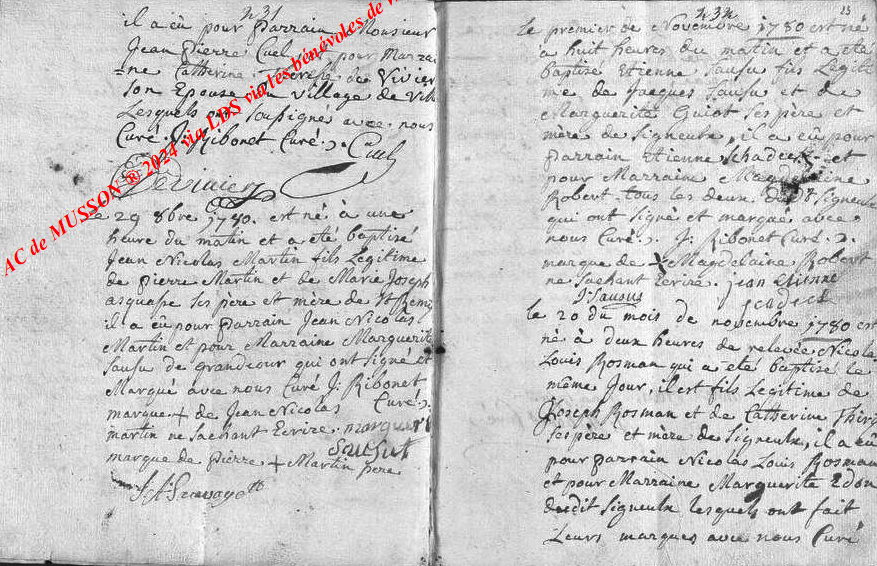 n 31
il a eû pour parrain Monsieur
Jean Pierre Cuel et pour Marrai
=ne Catherine Therese de Vivier
son Epouse du village de
Lesquels ont soussigné avec nous
Curé. J: Ribonet Curé.
Cuel
Devivier
le 29 8bre 1780. est né à une
heure du matin et a eté baptisé
Jean Nicolas Martin fils Legitime
de pierre Martin et de Marie Joseph
ses père et mère de St Remy
il a eû pour parrain Jean Nicolas
Martin et pour Marraine Marguerite
sausu de grandcour qui ont signé et
Marqué avec nous Curé J: Ribonet
Curé.
marque + de Jean Nicolas
martin ne Sachant Ecrire. marguerit
marque de pierre + Martin pere
AC de MUSSON ® 2024 via LDS via les bénévoles de
n 32
23
le premier de Novembre 1780 est né
à huit heures du matin et a eté
baptisé Etienne Sausu fils Legiti
me de Jacques Sausu et de
Marguerite Guiot ses père et
mère de Signeulx, il a eû pour
parrain Etienne Schadeck et
pour Marraine Magdelaine
Robert tous les deux de Signeulx
qui ont signé et marqué avec
nous Curé. J: Ribonet Curé.
marque de + Magdelaine Robert
ne sachant Ecrire. jean Etienne
le 20 du mois de novembre 1780 est
né à deux heures de relevée Nicolas
Louis Rosman qui a eté baptisé le
même jour, il est fils Legitime de
Joseph Rosman et de Catherine Thiry
ses père et mère de Signeulx, il a eû
pour parrain Nicolas Louis Rosman
et pour Marraine Marguerite Edon
dudit Signeulx lesquels ont fait
Leurs marques avec nous Curé